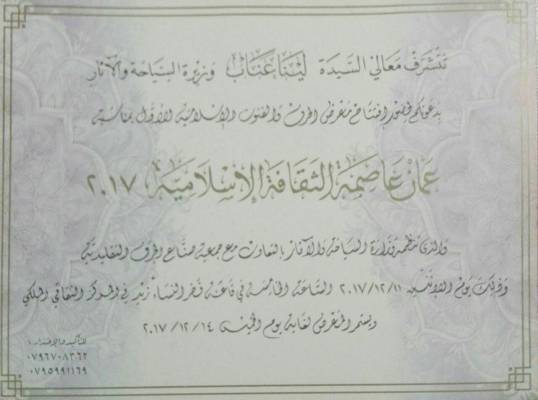 تتشرف معالي السيدة لينا عناب وزيرة السياحة والآثار
بدعوتكم لحضور افتتاح معرض الحرف والفنون الإسلامية الأول بمناسبة
عمان عاصمة الثقافة الإسلامية ٢٠١٧
والذي تنظمه وزارة السياحة والآثار بالتعاون مع جمعية صناع الحرف التقليدية
وذلك يوم الاثنين ٢٠١٧/١٢/١١ الساعة الخامسة في قاعة فخر النساء زيد في المركز الثقافي الملكي
ويستمر المعرض لغاية يوم الخميس ٢٠١٧/١٢/١٤
للتأكيد والاعتذار:
٠٧٩٦٧٠٨٣٦٢
٠٧٩٥٩٩١١٦٩